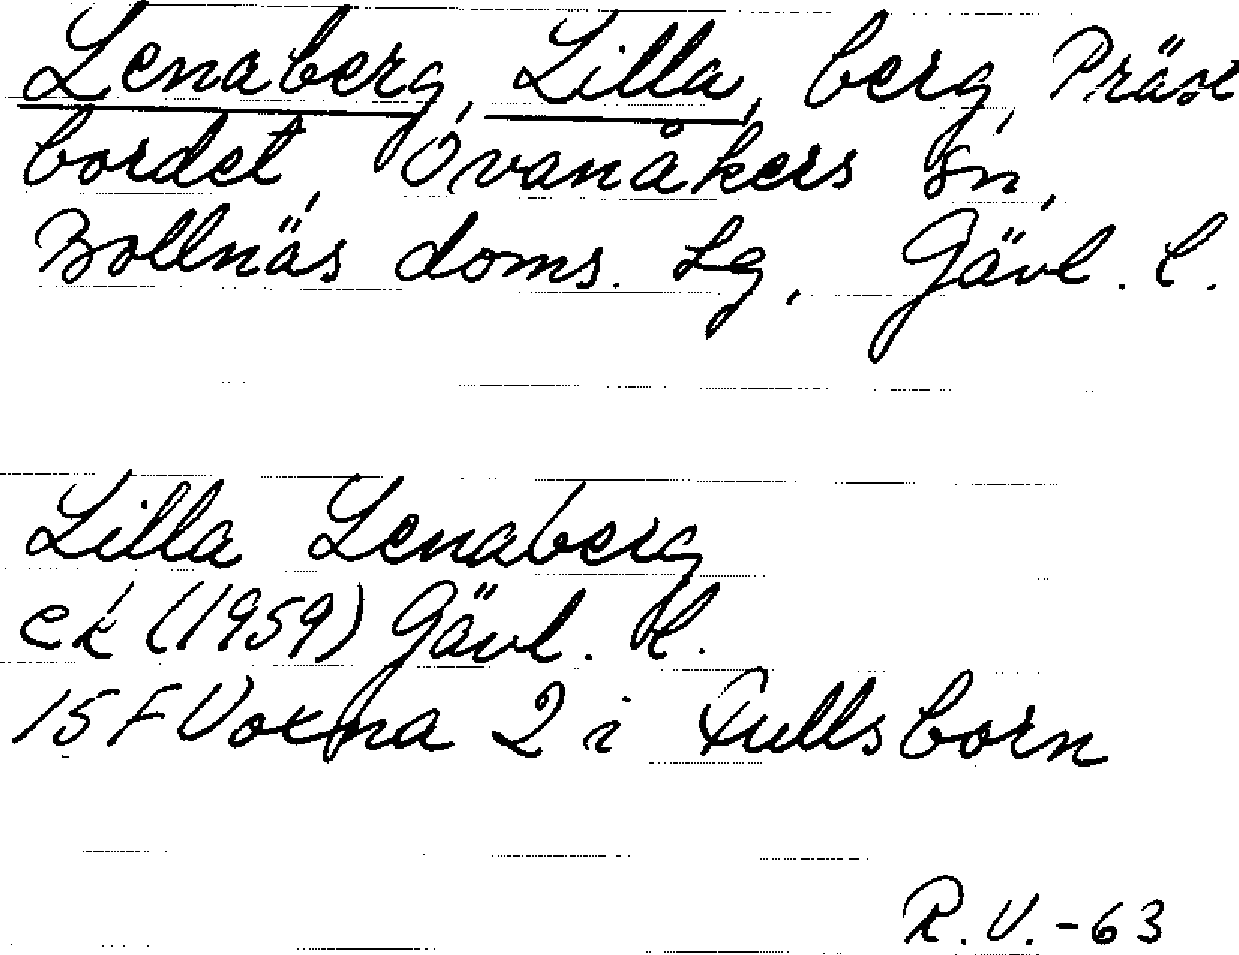 Lenaberg, Lilla, berg, Präst
bordet, Ovanåkers sn,
Bollnäs doms. lg, Gävl. l.
Lilla Lenaberg
ek (1959) Gävl. l.
15 F Voxna 2 i Gullsborn
R.V.-63